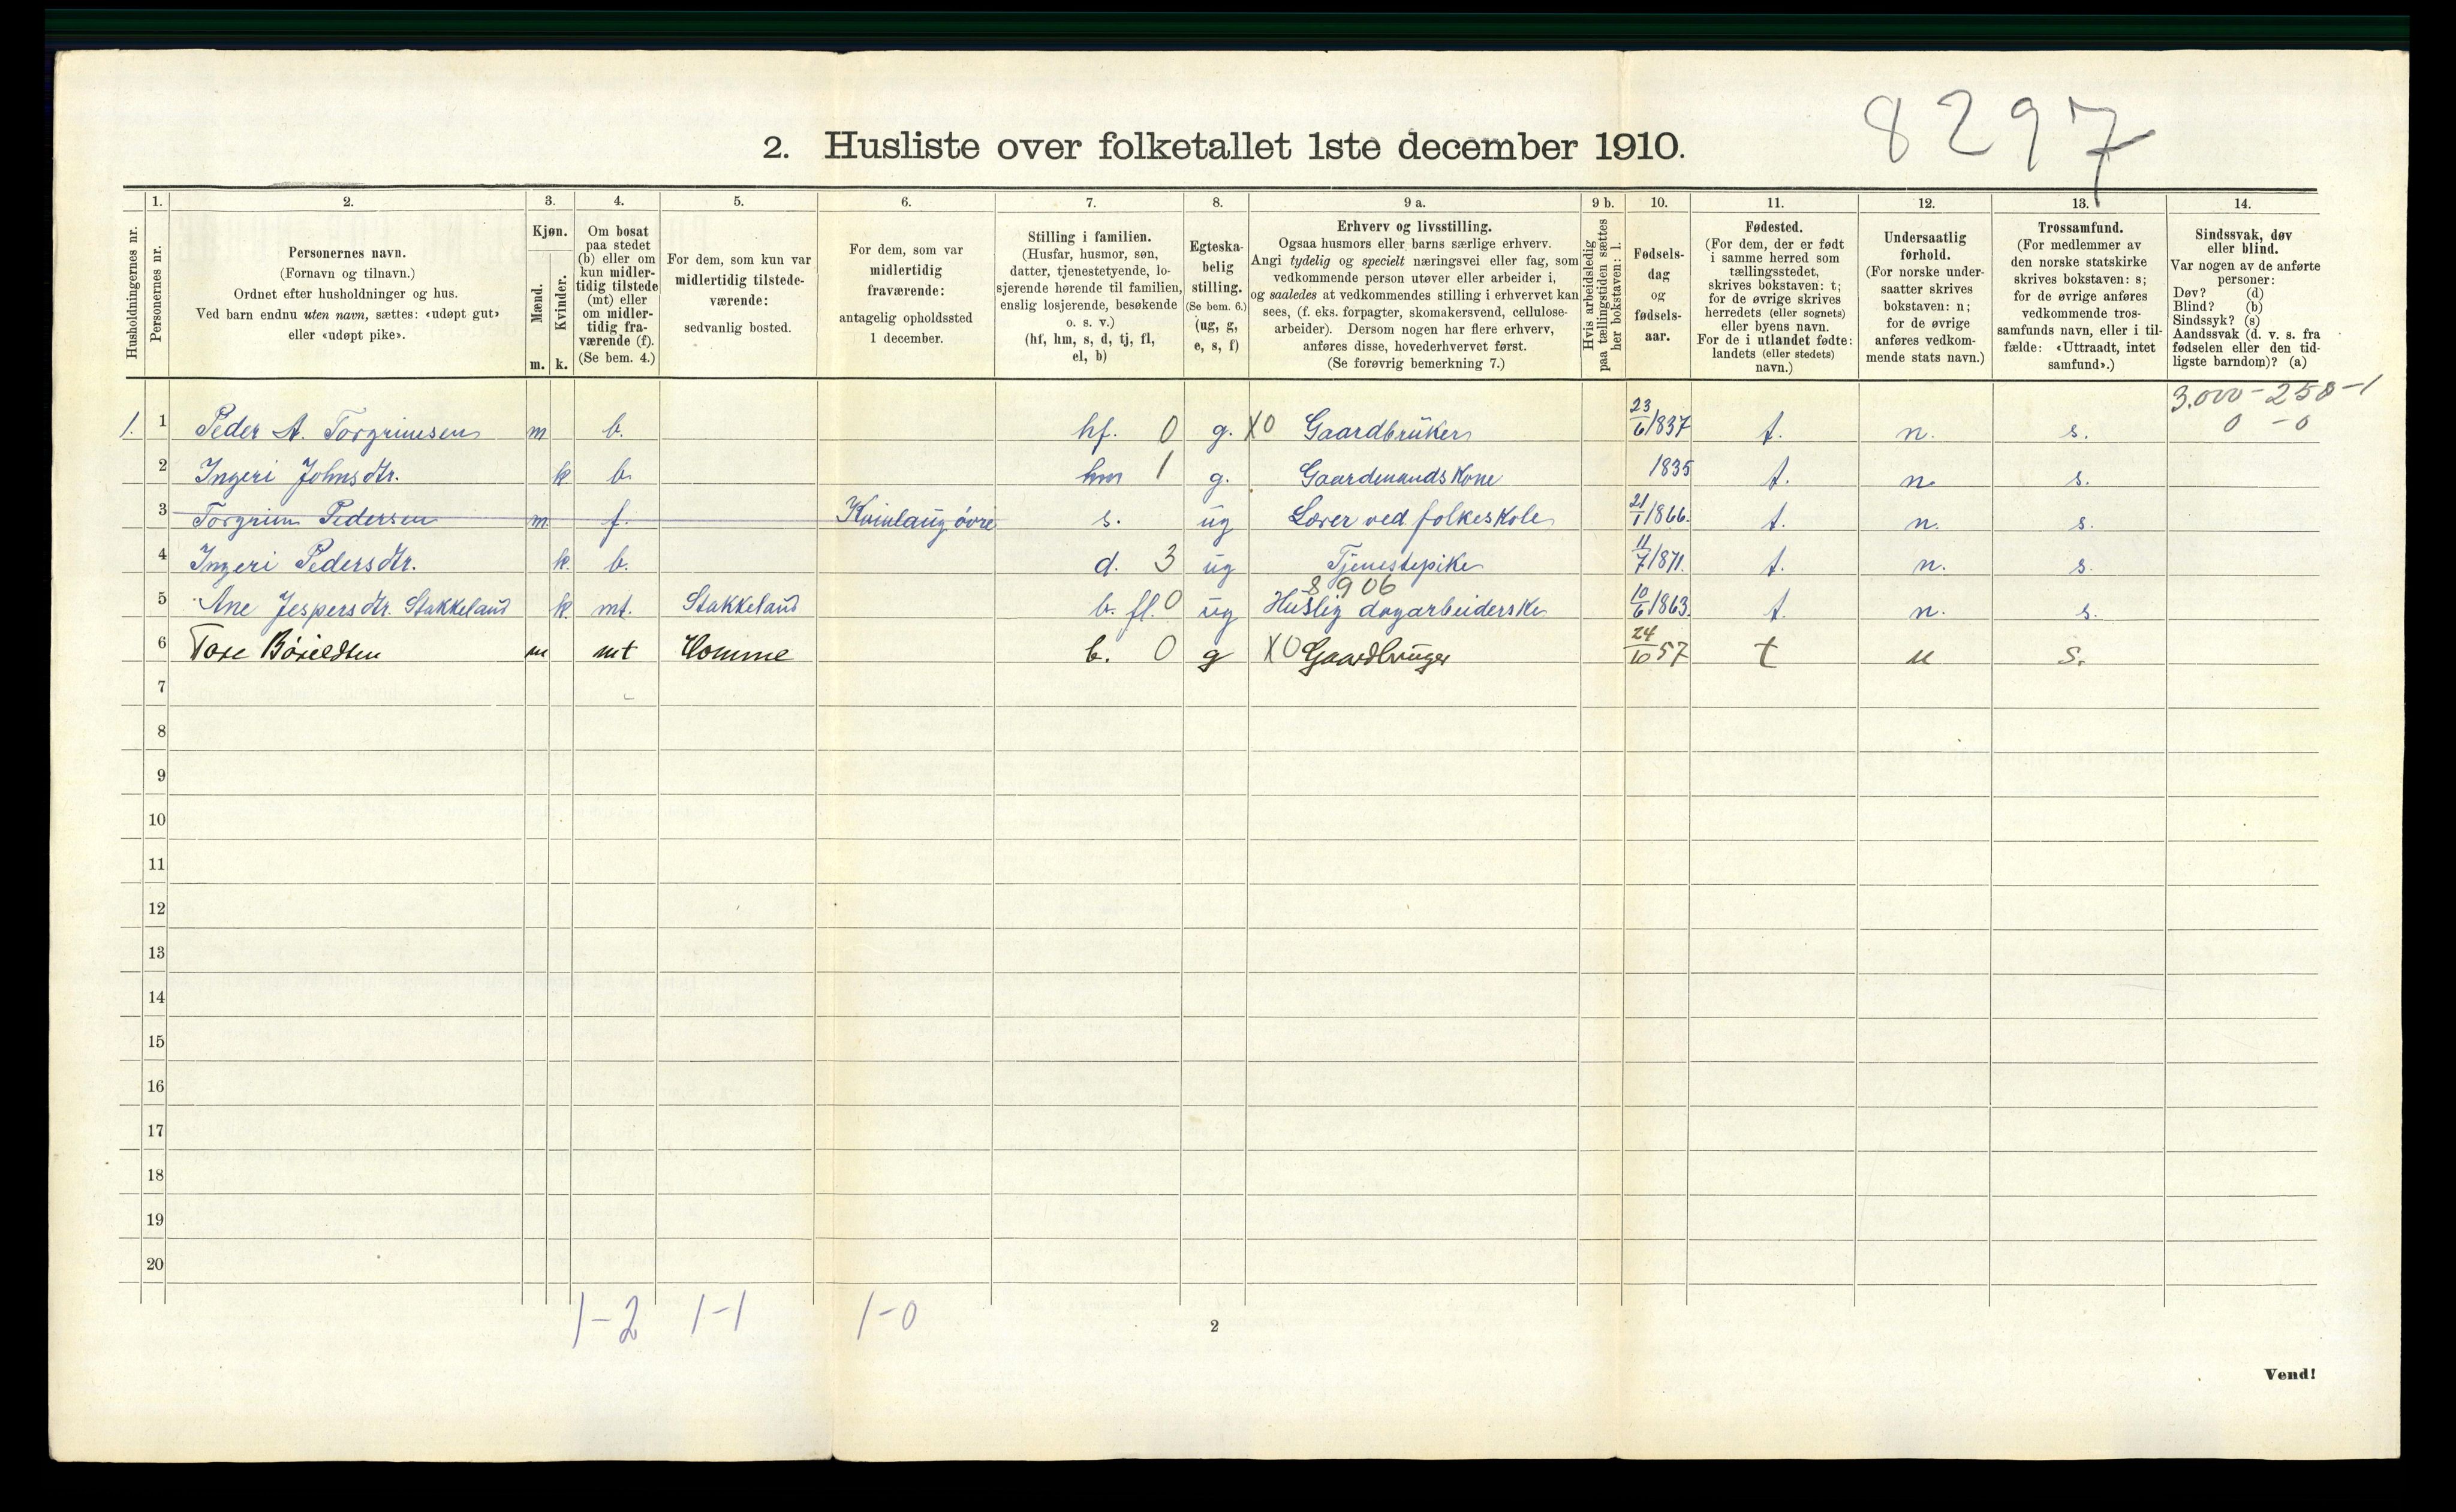 8297
2. Husliste over folketallet 1ste december 1910.
Husholdningernes nr.
1.
Personernes nr.
2.
Personernes navn.
(Fornavn og tilnavn.)
Ordnet efter husholdninger og hus.
Ved barn endnu uten navn, sættes: «udøpt gut»
eller «udøpt pike».
3.
Kjøn.
Mænd.
Kvinder.
m. k.
4.
Om bosat
paa stedet
(b) eller om
kun midler-
tidig tilstede
(mt) eller
om midler-
tidig fra-
værende (f).
(Se bem. 4.)
5.
For dem, som kun var
midlertidig tilstede-
værende:
sedvanlig bosted.
6.
For dem, som var
midlertidig
fraværende:
antagelig opholdssted
1 december.
7.
Stilling i familien.
(Husfar, husmor, søn,
datter, tjenestetyende, lo-
sjerende hørende til familien,
enslig losjerende, besøkende
o. s. v.)
(hf, hm, s, d, tj, fl,
el, b)
8.
Egteska-
belig
stilling.
(Se bem. 6.)
(ug, g,
e, s, f)
9 a.
Erhverv og livsstilling.
Ogsaa husmors eller barns særlige erhverv.
Angi tydelig og specielt næringsvei eller fag, som
vedkommende person utøver eller arbeider i,
og saaledes at vedkommendes stilling i erhvervet kan
sees, (f. eks. forpagter, skomakersvend, cellulose-
arbeider). Dersom nogen har flere erhverv,
anføres disse, hovederhvervet først.
(Se forøvrig bemerkning 7.)
9 b.
Hvis arbeidsledig
paa tællingstiden sættes
her bokstaven: l.
10.
Fødsels-
dag
og
fødsels-
aar.
11.
Fødested.
(For dem, der er født
i samme herred som
tællingsstedet,
skrives bokstaven: t;
for de øvrige skrives
herredets (eller sognets)
eller byens navn.
For de i utlandet fødte:
landets (eller stedets)
navn.)
12.
Undersaatlig
forhold.
(For norske under-
saatter skrives
bokstaven: n;
for de øvrige
anføres vedkom-
mende stats navn.)
13.
Trossamfund.
(For medlemmer av
den norske statskirke
skrives bokstaven: s;
for de øvrige anføres
vedkommende tros-
samfunds navn, eller i til-
fælde: «Uttraadt, intet
samfund».)
14.
Sindssvak, døv
eller blind.
Var nogen av de anførte
personer:
Døv? (d)
Blind? (b)
Sindssyk? (s)
Aandssvak (d. v. s. fra
fødselen eller den tid-
ligste barndom)? (a)
3.000-250-1
0 -0
1. 1 Peder A. Torgrimsen m b. hf. 0 g. X0 Gaardbruker 23/6 1837 t. n. s.
2 Ingeri Johnsdtr. k b. hm 1 g. Gaardmandskone 1835 t. n. s.
3 Torgrim Pedersen m. f. Kvinlaug øvre s. ug Lærer ved folkeskole 21/1 1866. t. n. s.
4 Ingeri Pedersdtr. k. b. d. 3 ug Tjenestepike 11/7 1871. t. n. s.
8906
5 Ane Jespersdtr. Stakkeland k. mt. Stakkeland b. fl. 0 ug Huslig dagarbeiderske 10/6 1863. t. n. s.
6 Tore Børieldsen m mt Homme b. 0 g X0 Gaardbruger 24/10 57 t n s.
7
8
9
10
11
12
13
14
15
16
17
18
19
20
1-2 1-1 1-0
2
Vend!